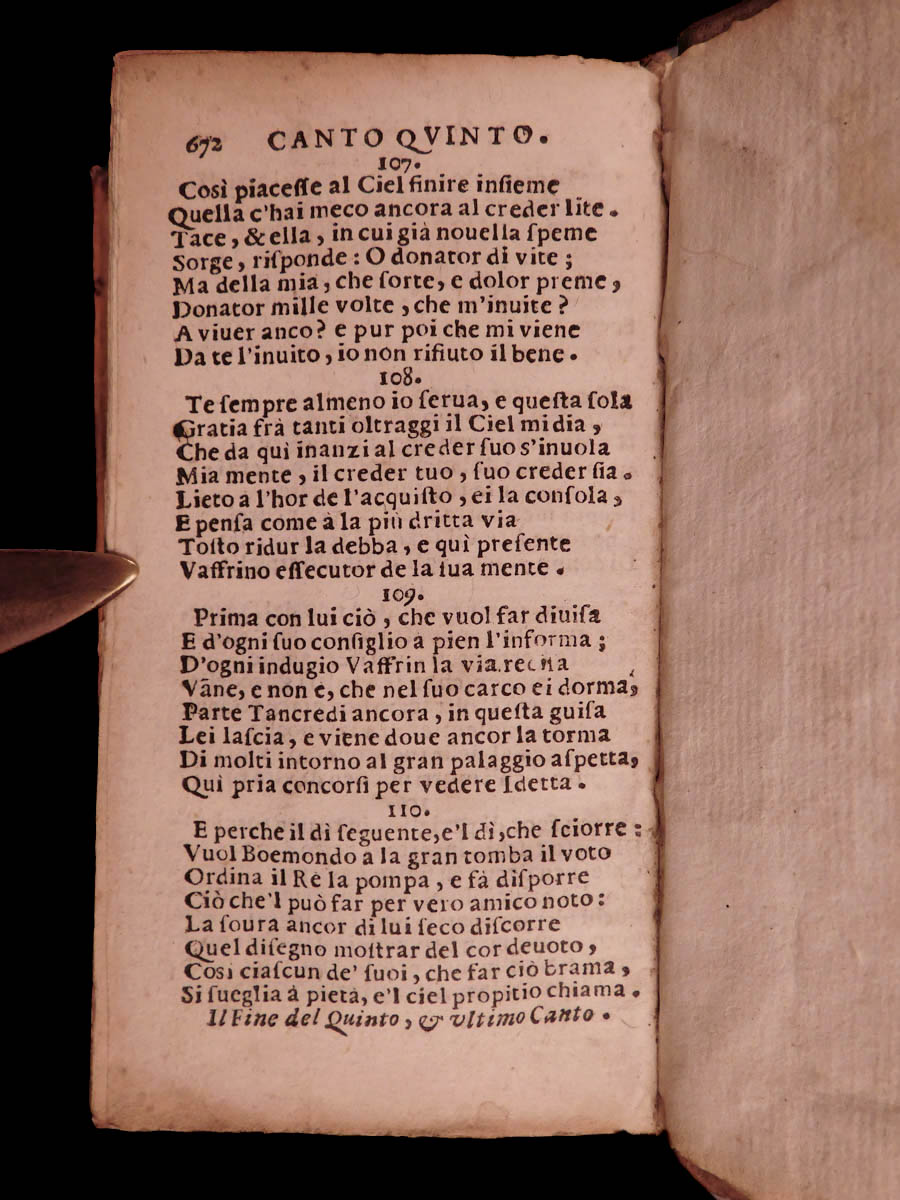 672 CANTO QVINTO.
107.
Così piaceſſe al Ciel finire inſieme
Quella c'hai meco ancora al creder lite.
Tace, & ella, in cui già nouella ſpeme
Sorge, riſponde: O donator di vite;
Ma della mia, che ſorte, e dolor preme,
Donator mille volte, che m'inuite?
A viuer anco? e pur poi che mi viene
Da te l'inuito, io non rifiuto il bene.
108.
Te ſempre almeno io ſerua, e queſta ſola
Gratia frà tanti oltraggi il Ciel mi dia,
Che da quì inanzi al creder ſuo s'inuola
Mia mente, il creder tuo, ſuo creder ſia.
Lieto a l'hor de l'acquiſto, ei la conſola,
E penſa come à la più dritta via
Toſto ridur la debba, e quì preſente
Vaffrino eſſecutor de la ſua mente.
109.
Prima con lui ciò, che vuol far diuiſa
E d'ogni ſuo conſiglio à pien l'informa;
D'ogni indugio Vaffrin la via
Vàne, e non è, che nel ſuo carco ei dorma,
Parte Tancredi ancora, in queſta guiſa
Lei laſcia, e viene doue ancor la torma
Di molti intorno al gran palaggio aſpetta,
Quì pria concorſi per vedere Idetta.
110.
E perche il dì ſeguente, e'l dì, che ſciorre:
Vuol Boemondo a la gran tomba il voto
Ordina il Rè la pompa, e fà diſporre
Ciò che'l può far per vero amico noto:
La ſoura ancor di lui ſeco diſcorre
Quel diſegno moſtrar del cor deuoto,
Così ciaſcun de' ſuoi, che far ciò brama,
Si ſueglia à pietà, e'l ciel propitio chiama.
Il Fine del Quinto, & vltimo Canto.